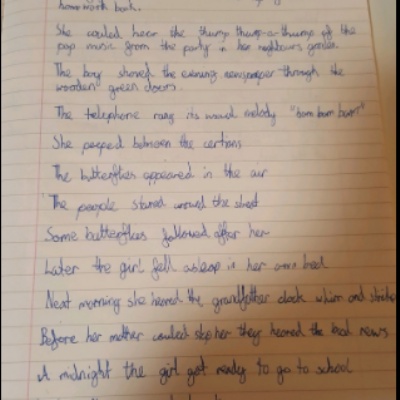 homework book.
She could hear the thump thump-a-thump of the
pop music from the party in her neighbours garden.
The boy shoved the evening newspaper through the
wooden green doors.
The telephone rang its usual melody "bom bom bom"
She peeped between the certians
The butterflies appeared in the air
The people stared around the street
Some butterflies followed after her
Later the girl fell asleep in her own bed
Next morning she heared the grandfather clock whirr and strike
Before her mother could stop her they heared the bad news
A midnight the girl got ready to go to school